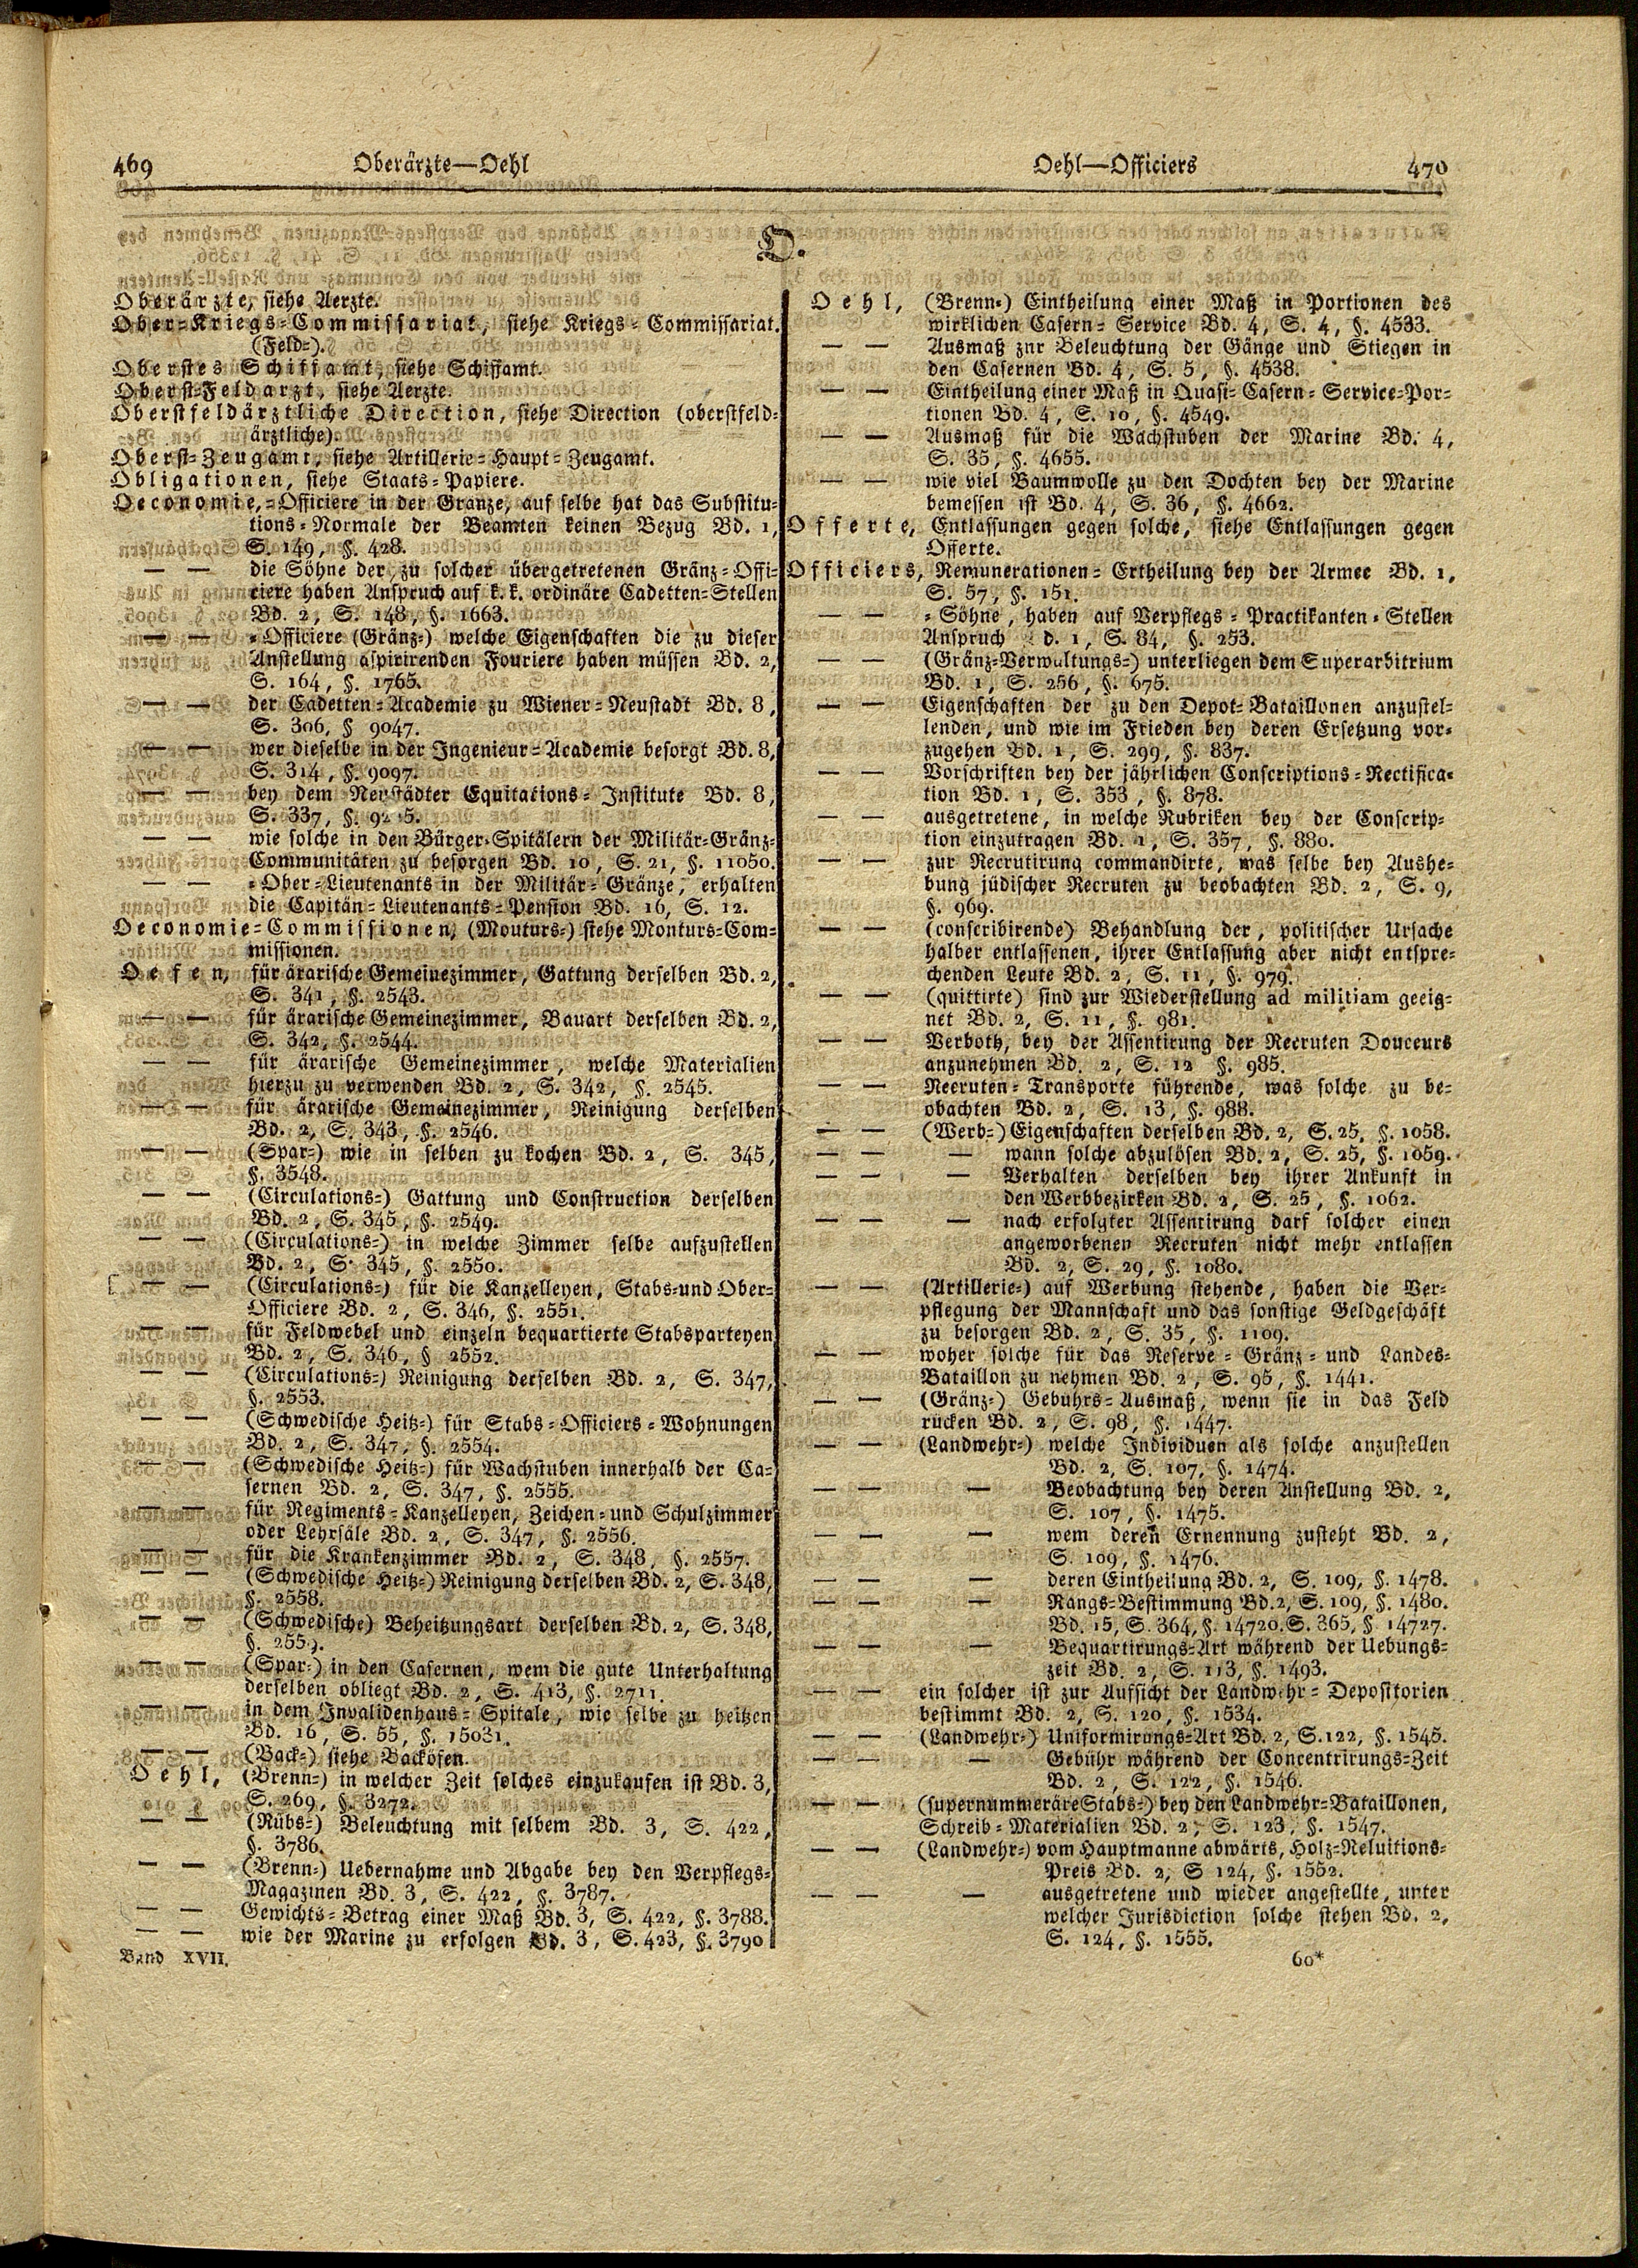 469 Oberärzte—Oehl
Oehl—Officiers 470
O.
Oberärzte, siehe Aerzte.
Ober-Kriegs-Commissariat, siehe Kriegs-Commissariat.
(Feld-).
Oberstes Schiffamt, siehe Schiffamt.
Oberst-Feldarzt, siehe Aerzte.
Oberstfeldärztliche Direction, siehe Direction (oberstfeld-
ärztliche).
Oberst-Zeugamt, siehe Artillerie-Haupt-Zeugamt.
Obligationen, siehe Staats-Papiere.
Oeconomie,-Officiere in der Gränze, auf selbe hat das Substitu-
tions-Normale der Beamten keinen Bezug Bd. 1,
S. 149, §. 428.
— — die Söhne der zu solcher übergetretenen Gränz-Offi-
ciere haben Anspruch auf k. k. ordinäre Cadetten-Stellen
Bd. 2, S. 148, §. 1663.
— — -Officiere (Gränz-) welche Eigenschaften die zu dieser
Anstellung aspirirenden Fouriere haben müssen Bd. 2,
S. 164, §. 1765.
— — der Cadetten-Academie zu Wiener-Neustadt Bd. 8,
S. 306, § 9047.
— — wer dieselbe in der Ingenieur-Academie besorgt Bd. 8,
S. 314, §. 9097.
— — bey dem Neustädter Equitations-Institute Bd. 8,
S. 337, §.
— — wie solche in den Bürger-Spitälern der Militär-Gränz-
Communitäten zu besorgen Bd. 10, S. 21, §. 11050.
— — -Ober-Lieutenants in der Militär-Gränze, erhalten
die Capitän-Lieutenants-Pension Bd. 16, S. 12.
Oeconomie-Commissionen, (Monturs-) siehe Monturs-Com-
missionen.
Oefen, für ärarische Gemeinezimmer, Gattung derselben Bd. 2,
S. 341, §. 2543.
— — für ärarische Gemeinezimmer, Bauart derselben Bd. 2,
S. 342, §. 2544.
— — für ärarische Gemeinezimmer, welche Materialien
hierzu zu verwenden Bd. 2, S. 342, §. 2545.
— — für ärarische Gemeinezimmer, Reinigung derselben
Bd. 2, S. 343, §. 2546.
— — (Spar-) wie in selben zu kochen Bd. 2, S. 345,
§. 3548.
— — (Circulations-) Gattung und Construction derselben
Bd. 2, S. 345, §. 2549.
— — (Circulations-) in welche Zimmer selbe aufzustellen
Bd. 2, S. 345, §. 2550.
— — (Circulations-) für die Kanzelleyen, Stabs-und Ober-
Officiere Bd. 2, S. 346, §. 2551.
— — für Feldwebel und einzeln bequartierte Stabsparteyen
Bd. 2, S. 346, § 2552.
— — (Circulations-) Reinigung derselben Bd. 2, S. 347,
§. 2553.
— — (Schwedische Heitz-) für Stabs-Officiers-Wohnungen
Bd. 2, S. 347, §. 2554.
— — (Schwedische Heitz-) für Wachstuben innerhalb der Ca-
sernen Bd. 2, S. 347, §. 2555.
— — für Regiments-Kanzelleyen, Zeichen-und Schulzimmer
oder Lehrsäle Bd. 2, S. 347, §. 2556.
— — für die Krankenzimmer Bd. 2, S. 348, §. 2557.
— — (Schwedische Heitz-) Reinigung derselben Bd. 2, S. 348,
§. 2558.
— — (Schwedische) Beheitzungsart derselben Bd. 2, S. 348,
§. 2559.
— — (Spar-) in den Casernen, wem die gute Unterhaltung
derselben obliegt Bd. 2, S. 413, §. 2711.
— — in dem Invalidenhaus-Spitale, wie selbe zu heitzen
Bd. 16, S. 55, §. 15031.
— — (Back-) siehe Backöfen.
Oehl, (Brenn-) in welcher Zeit solches einzukaufen ist Bd. 3,
S. 269, §. 3272.
— — (Rübs-) Beleuchtung mit selbem Bd. 3, S. 422,
§. 3786.
— — (Brenn-) Uebernahme und Abgabe bey den Verpflegs-
Magazinen Bd. 3, S. 422, §. 3787.
— — Gewichts-Betrag einer Maß Bd. 3, S. 422, §. 3788.
— — wie der Marine zu erfolgen Bd. 3, S. 423, §. 3790
Band XVII.
Oehl, (Brenn-) Eintheilung einer Maß in Portionen des
wirklichen Casern-Service Bd. 4, S. 4, §. 4533.
— — Ausmaß zur Beleuchtung der Gänge und Stiegen in
den Casernen Bd. 4, S. 5, §. 4538.
— — Eintheilung einer Maß in Quasi-Casern-Service-Por-
tionen Bd. 4, S. 10, §. 4549.
— — Ausmaß für die Wachstuben der Marine Bd. 4,
S. 35, §. 4655.
— — wie viel Baumwolle zu den Dochten bey der Marine
bemessen ist Bd. 4, S. 36, §. 4662.
Offerte, Entlassungen gegen solche, siehe Entlassungen gegen
Offerte.
Officiers, Remunerationen-Ertheilung bey der Armee Bd. 1,
S. 57, §. 151.
— — -Söhne, haben auf Verpflegs-Practikanten-Stellen
Anspruch d. 1, S. 84, §. 253.
— — (Gränz-Verwaltungs-) unterliegen dem Superarbitrium
Bd. 1, S. 256, §. 675.
— — Eigenschaften der zu den Depot-Bataillonen anzustel-
lenden, und wie im Frieden bey deren Ersetzung vor-
zugehen Bd. 1, S. 299, §. 837.
— — Vorschriften bey der jährlichen Conscriptions-Rectifica-
tion Bd. 1, S. 353, §. 878.
— — ausgetretene, in welche Rubriken bey der Conscrip-
tion einzutragen Bd. 1, S. 357, §. 880.
— — zur Recrutirung commandirte, was selbe bey Aushe-
bung jüdischer Recruten zu beobachten Bd. 2, S. 9,
§. 969.
— — (conscribirende) Behandlung der, politischer Ursache
halber entlassenen, ihrer Entlassung aber nicht entspre-
chenden Leute Bd. 2, S. 11, §. 979.
— — (quittirte) sind zur Wiederstellung ad militiam geeig-
net Bd. 2, S. 11, §. 981.
— — Verboth, bey der Assentirung der Recruten Douceurs
anzunehmen Bd. 2, S. 12 §. 985.
— — Recruten-Transporte führende, was solche zu be-
obachten Bd. 2, S. 13, §. 988.
— — (Werb-) Eigenschaften derselben Bd. 2, S. 25, §. 1058.
— — — wann solche abzulösen Bd. 2, S. 25, §. 1059.
— — — Verhalten derselben bey ihrer Ankunft in
den Werbbezirken Bd. 2, S. 25, §. 1062.
— — — nach erfolgter Assentirung darf solcher einen
angeworbenen Recruten nicht mehr entlassen
Bd. 2, S. 29, §. 1080.
— — (Artillerie-) auf Werbung stehende, haben die Ver-
pflegung der Mannschaft und das sonstige Geldgeschäft
zu besorgen Bd. 2, S. 35, §. 1109.
— — woher solche für das Reserve-Gränz-und Landes-
Bataillon zu nehmen Bd. 2, S. 95, §. 1441.
— — (Gränz-) Gebührs-Ausmaß, wenn sie in das Feld
rücken Bd. 2, S. 98, §. 1447.
— — (Landwehr-) welche Individuen als solche anzustellen
Bd. 2, S. 107, §. 1474.
— — — Beobachtung bey deren Anstellung Bd. 2,
S. 107, §. 1475.
— — — wem deren Ernennung zusteht Bd. 2,
S. 109, §. 1476.
— — — deren Eintheilung Bd. 2, S. 109, §. 1478.
— — — Rangs-Bestimmung Bd. 2, S. 109, §. 1480.
Bd. 15, S. 364, §. 14720. S. 365, §. 14727.
— — — Bequartirungs-Art während der Uebungs-
zeit Bd. 2, S. 113, §. 1493.
— — ein solcher ist zur Aufsicht der Landwehr-Depositorien
bestimmt Bd. 2, S. 120, §. 1534.
— — (Landwehr-) Uniformirungs-Art Bd. 2, S. 122, §. 1545.
— — — Gebühr während der Concentrirungs-Zeit
Bd. 2, S. 122, §. 1546.
— — (supernummeräre Stabs-) bey den Landwehr-Bataillonen,
Schreib-Materialien Bd. 2, S. 123, §. 1547.
— — (Landwehr-) vom Hauptmanne abwärts, Holz-Reluitions-
Preis Bd. 2, S 124, §. 1552.
— — — ausgetretene und wieder angestellte, unter
welcher Jurisdiction solche stehen Bd. 2,
S. 124, §. 1555.
60*